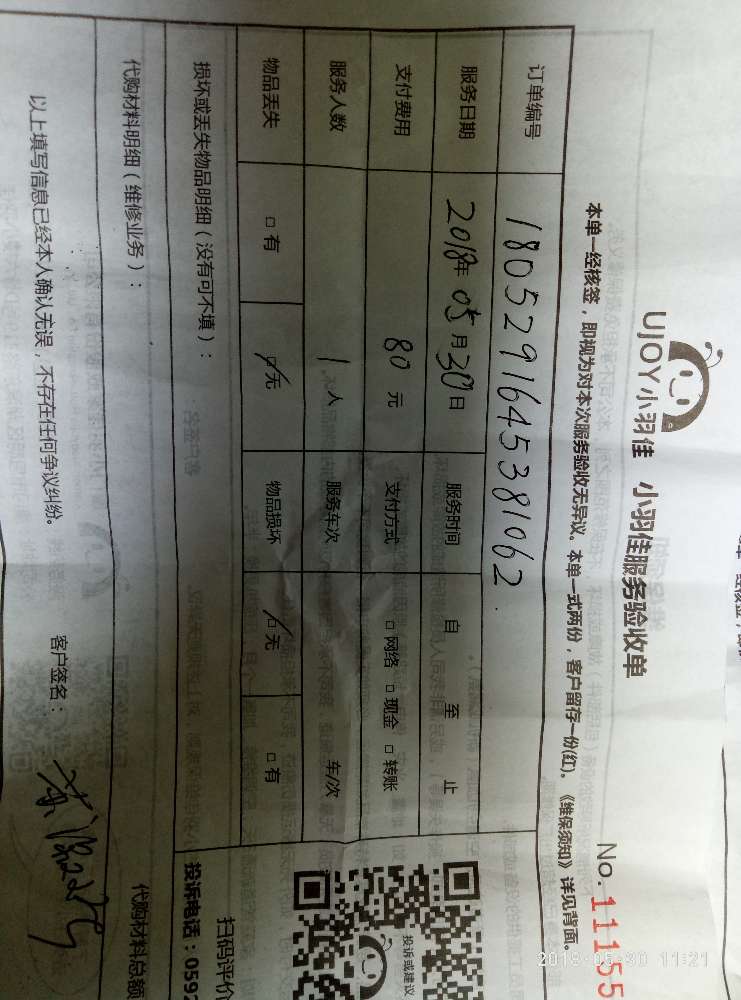 UJOY小羽佳 小羽佳服务验收单
No. 11155
本单一经核签，即视为对本次服务验收无异议。本单一式两份，客户留存一份(红)。《维保须知》详见背面。
订单编号 1805291645381062
服务日期 2018年05月30日 服务时间 自 至 止
支付费用 80元 支付方式 □网络 □现金 □转账
服务人数 1人 服务车次 车/次
物品丢失 □有 □无 物品损坏 □无 □有
损坏或丢失物品明细（没有可不填）：
代购材料明细（维修业务）：
代购材料总额
以上填写信息已经本人确认无误，不存在任何争议纠纷。 客户签名：
投诉或建议
扫码评价
投诉电话：0592
2018-05-30 11:21